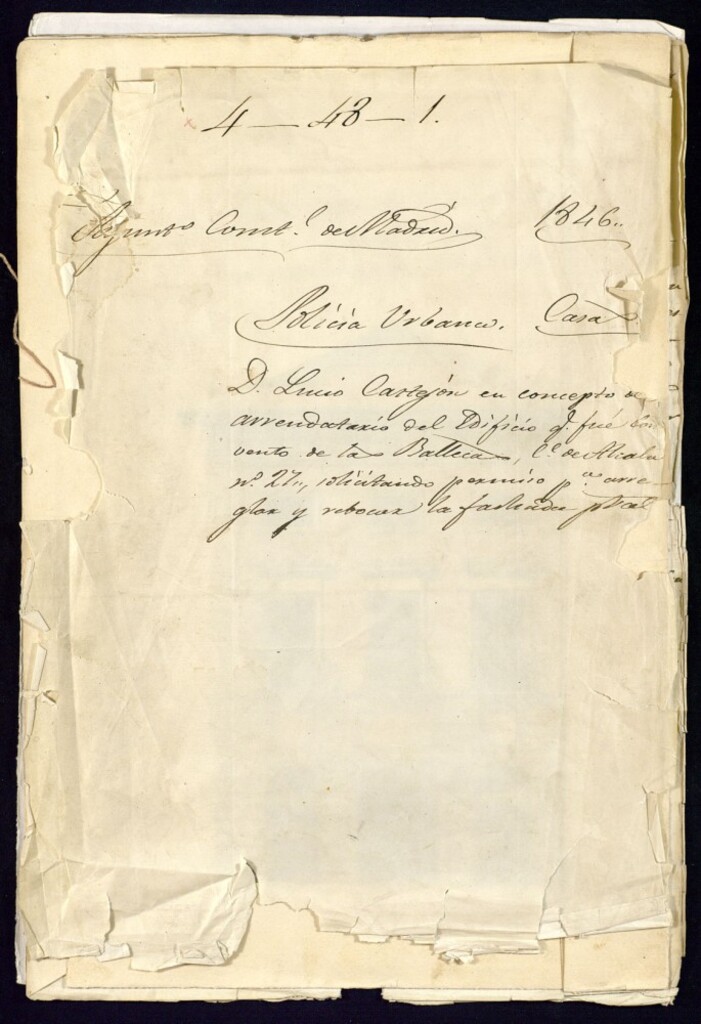 4 — 48 — 1.
Ayunto Const.l de Madrid. 1846.
Policia Urbana. Casa
D. Lucio en concepto de
arrendatario del Edificio q.e fué con
vento de la Balleca, C.e de Alcala
nº 27,, solicitando permiso p.a arre-
glar y rebocar la fachada pral